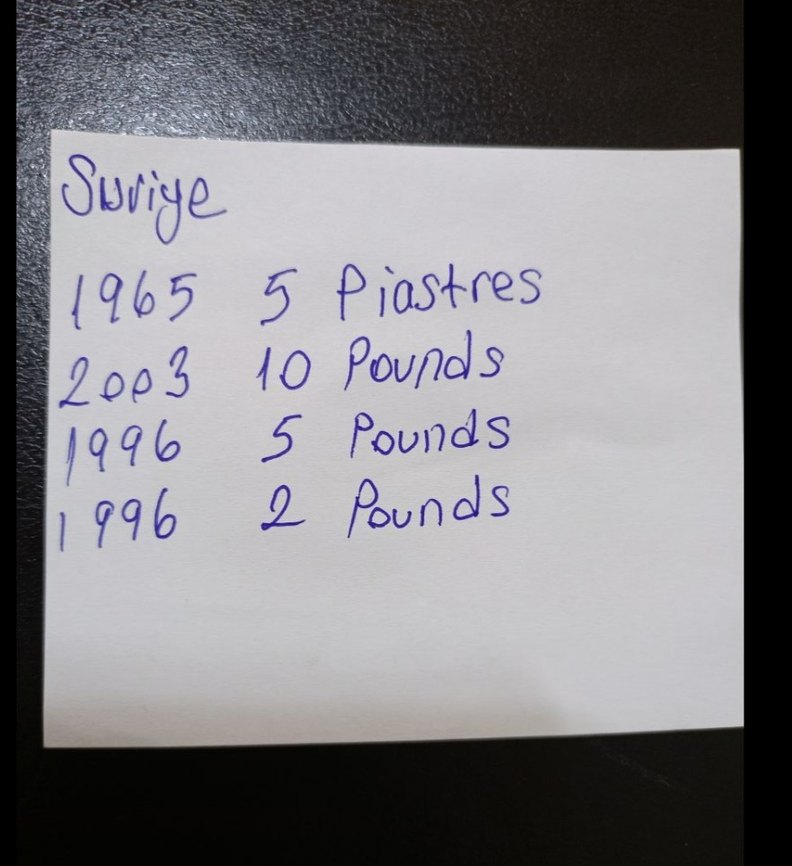 Suriye
1965 5 Piastres
2003 10 Pounds
1996 5 Pounds
1996 2 Pounds